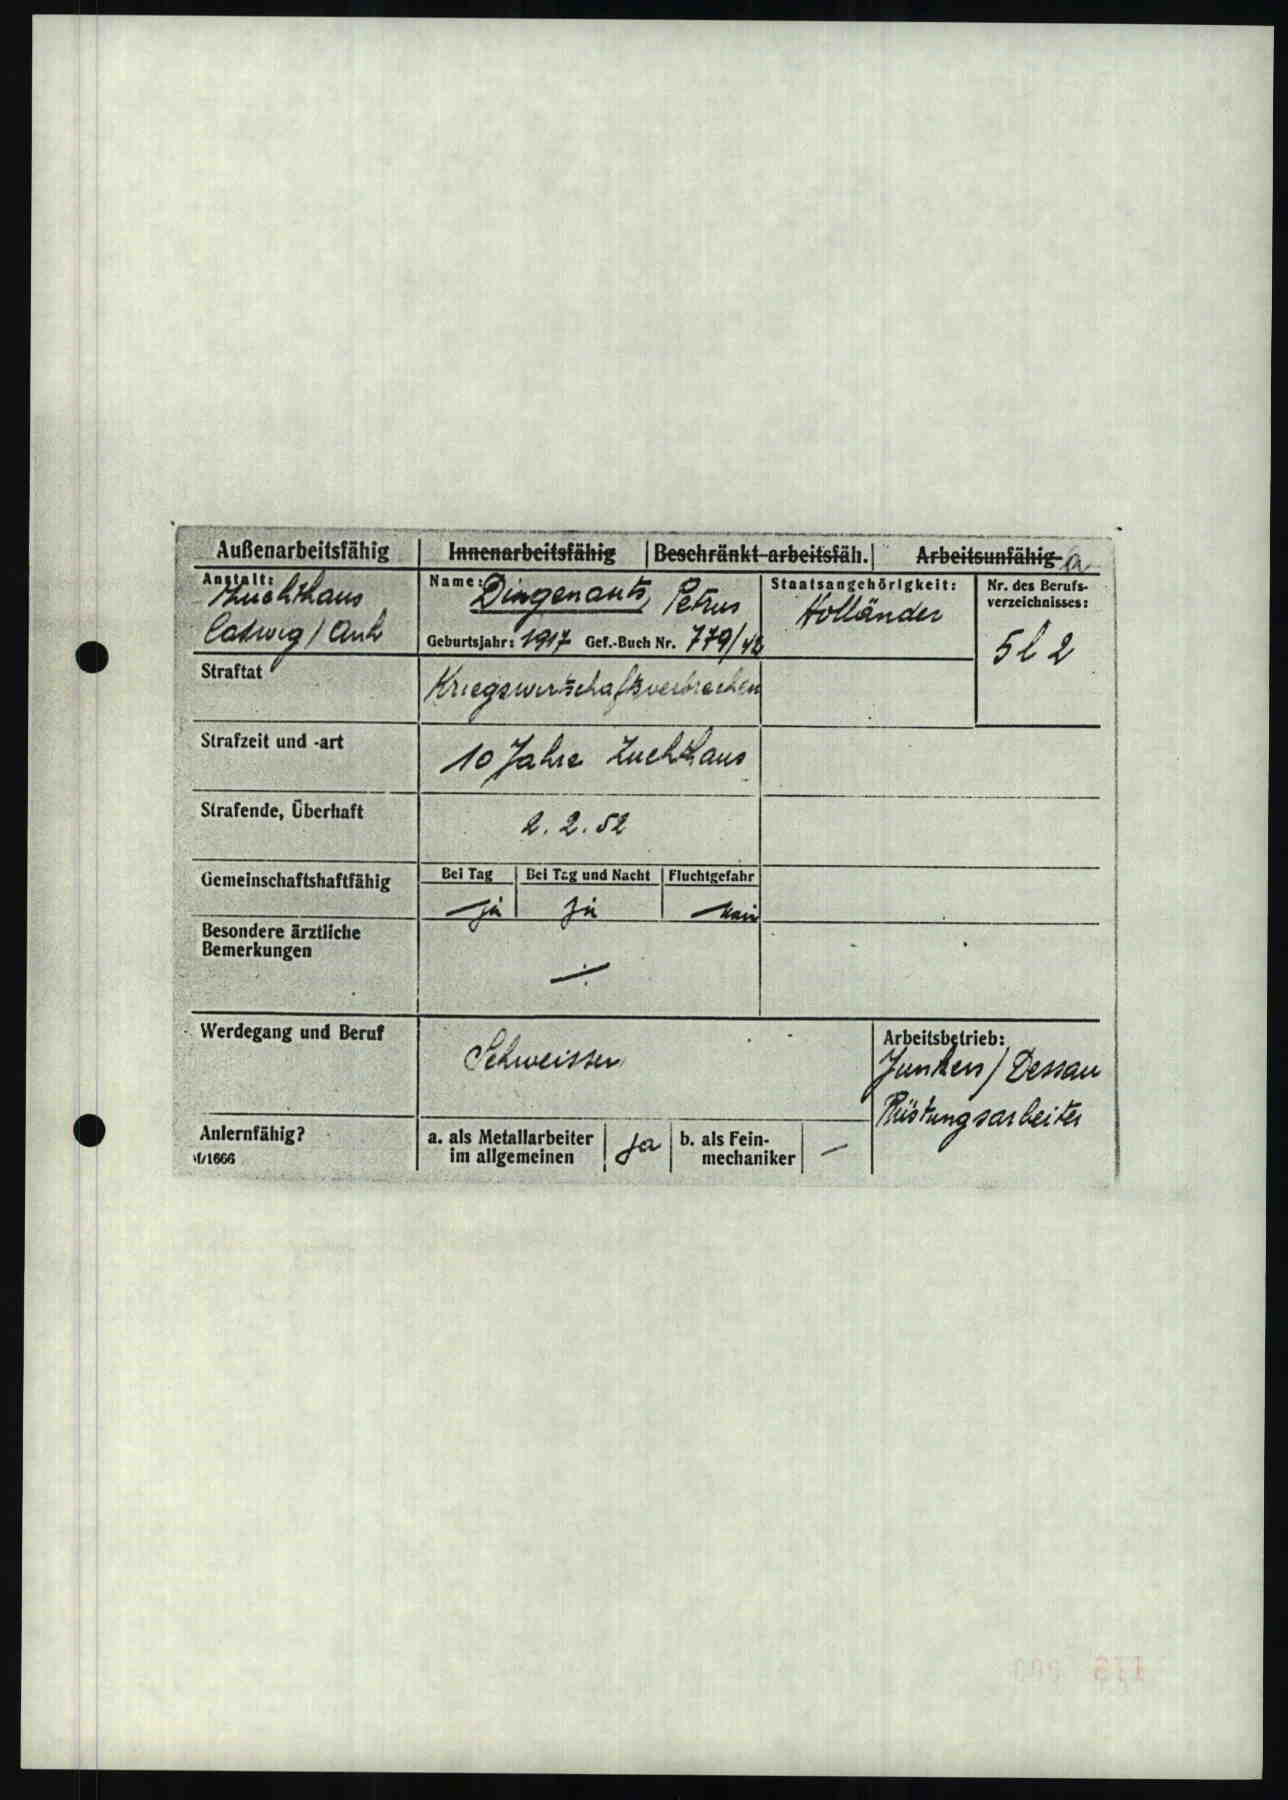 Außenarbeitsfähig Innenarbeitsfähig Beschränkt arbeitsfäh. Arbeitsunfähig a
Anstalt: Name: Dingenauts, Petrus Staatsangehörigkeit: Nr. des Berufs-
Zuchthaus Holländer verzeichnisses:
Coswig / Anh Geburtsjahr: 1917 Gef.-Buch Nr. 779/42 5 l 2
Straftat Kriegswirtschaftsverbrechen
Strafzeit und -art 10 Jahre Zuchthaus
Strafende, Überhaft 2. 2. 52
Gemeinschaftshaftfähig Bei Tag Bei Tag und Nacht Fluchtgefahr
ja ja nein
Besondere ärztliche
Bemerkungen
Werdegang und Beruf Schweisser Arbeitsbetrieb:
Junkers / Dessau
Rüstungsarbeiter
Anlernfähig? a. als Metallarbeiter ja b. als Fein- —
/1666 im allgemeinen mechaniker